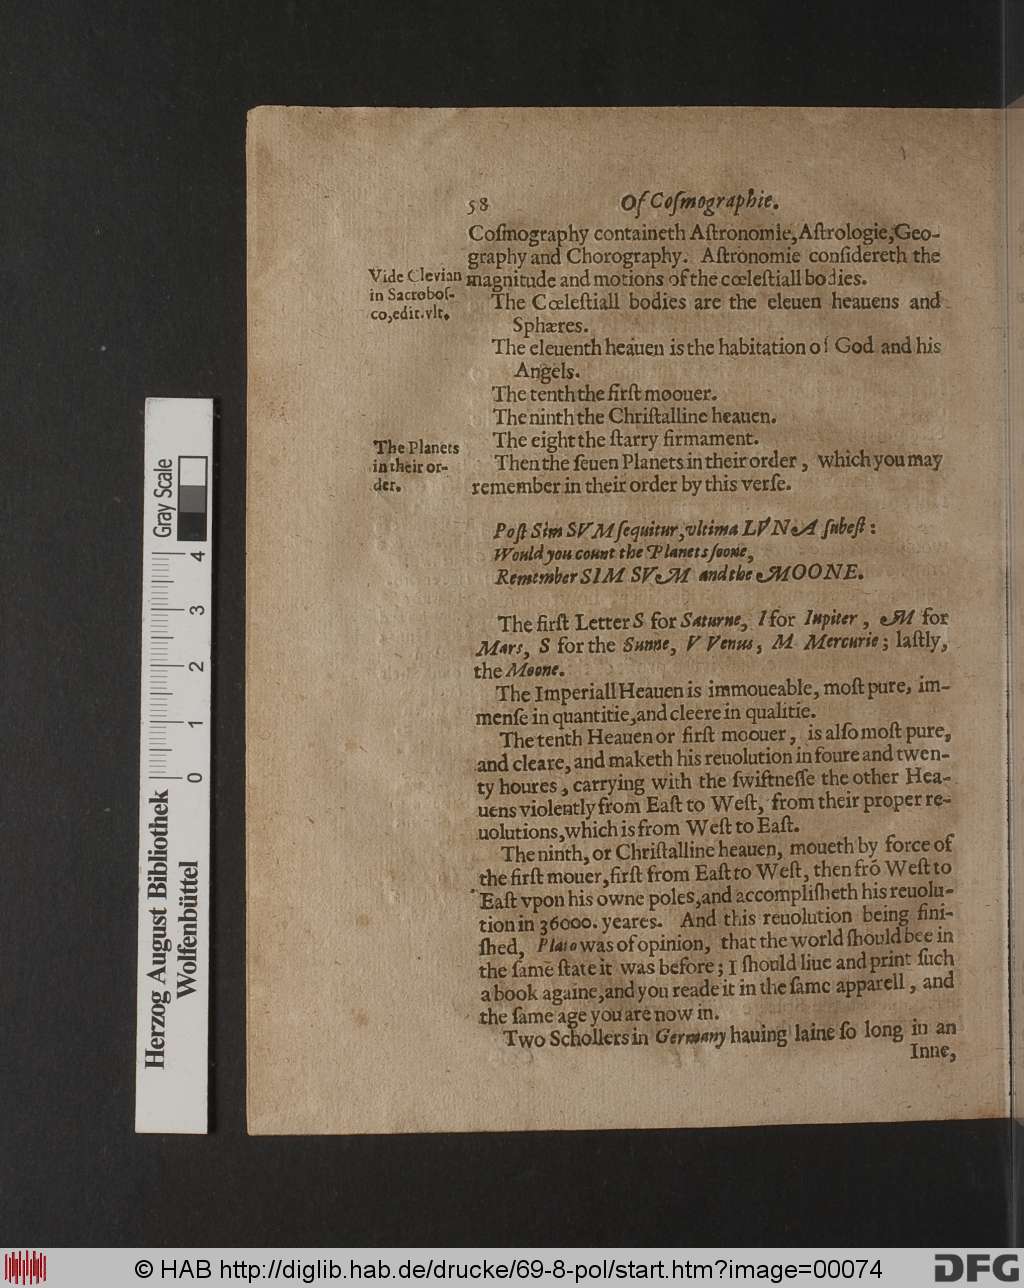 58 Of Coſmographie.
Coſmography containeth Aſtronomie, Aſtrologie, Geo-
graphy and Chorography. Aſtronomie conſidereth the
magnitude and motions of the cœleſtiall bodies.
Vide Clevian
in Sacroboſ-
co, edit. vlt.
The Cœleſtiall bodies are the eleuen heauens and
Sphæres.
The eleuenth heauen is the habitation of God and his
Angels.
The tenth the firſt moouer.
The ninth the Chriſtalline heauen.
The eight the ſtarry firmament.
The Planets
in their or-
der.
Then the ſeuen Planets in their order, which you may
remember in their order by this verſe.
Poſt Sim SVM ſequitur, vltima LVNA ſubeſt:
Would you count the Planets ſoone,
Remember SIM SVM and the MOONE.
The firſt Letter S for Saturne, I for Iupiter, M for
Mars, S for the Sunne, V Venus, M Mercurie; laſtly,
the Moone.
The Imperiall Heauen is immoueable, moſt pure, im-
menſe in quantitie, and cleere in qualitie.
The tenth Heauen or firſt moouer, is alſo moſt pure,
and cleare, and maketh his reuolution in foure and twen-
ty houres, carrying with the ſwiftneſſe the other Hea-
uens violently from Eaſt to Weſt, from their proper re-
uolutions, which is from Weſt to Eaſt.
The ninth, or Chriſtalline heauen, moueth by force of
the firſt mouer, firſt from Eaſt to Weſt, then frō Weſt to
Eaſt vpon his owne poles, and accompliſheth his reuolu-
tion in 36000. yeares. And this reuolution being fini-
ſhed, Plato was of opinion, that the world ſhould bee in
the ſame ſtate it was before; I ſhould liue and print ſuch
a book againe, and you reade it in the ſame apparell, and
the ſame age you are now in.
Two Schollers in Germany hauing laine ſo long in an
Inne,
Herzog August Bibliothek
Wolfenbüttel
Gray Scale
0 1 2 3 4
© HAB http://diglib.hab.de/drucke/69-8-pol/start.htm?image=00074
DFG